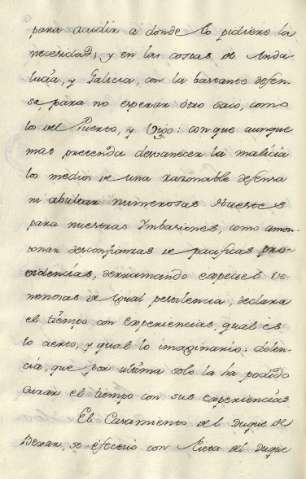 para acudir a donde lo pidiere la
necesidad; y en las costas de Anda
lucia, y Galicia, con la bastante defen
sa para no esperar otro caso, como
los del Puerto, y Vigo: con que aunque
mas pretenda desvanecer la malicia
los medios de una razonable defensa
ni abultar numerosas Huestes
para nuestras Imbasiones, como amon
tonar desconfianzas de pacificas pro
videncias, derramando especies ve
nenosas de igual pestilencia, declara
el tiempo con experiencias, qual es
lo cierto, y qual lo imaginario: dolen
cia, que por ultimo solo la ha podido
curar el tiempo con sus experiencias
El Casamiento del Duque de
Bejar, se efectuó con del Duque